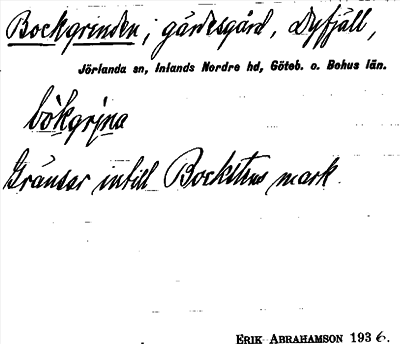 Bockgrinden, i gärdesgård, Dyfjäll,
Jörlanda sn, Inlands Nordre hd, Göteb. o. Bohus län.
bòkgrı̨na
Gränsar intill Bockstens mark.
ERIK ABRAHAMSON 1936.